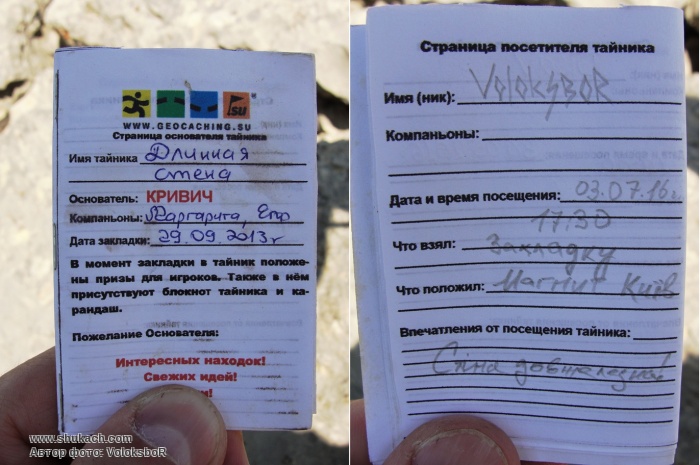 SU
WWW.GEOCACHING.SU
Страница основателя тайника
Имя тайника Длинная
стена
Основатель: КРИВИЧ
Компаньоны: Маргарита, Егор
Дата закладки: 29.09.2013г
В момент закладки в тайник положе-
ны призы для игроков. Также в нём
присутствуют блокнот тайника и ка-
рандаш.
Пожелание Основателя:
Интересных находок!
Свежих идей!
www.shukach.com
Автор фото: VoloksboR
Страница посетителя тайника
Имя (ник): VOLOKSBOR
Компаньоны:
Дата и время посещения: 03.07.16г.
17:30
Что взял: Закладку
Что положил: Магніт Київ
Впечатления от посещения тайника:
Стіна довжелезна!